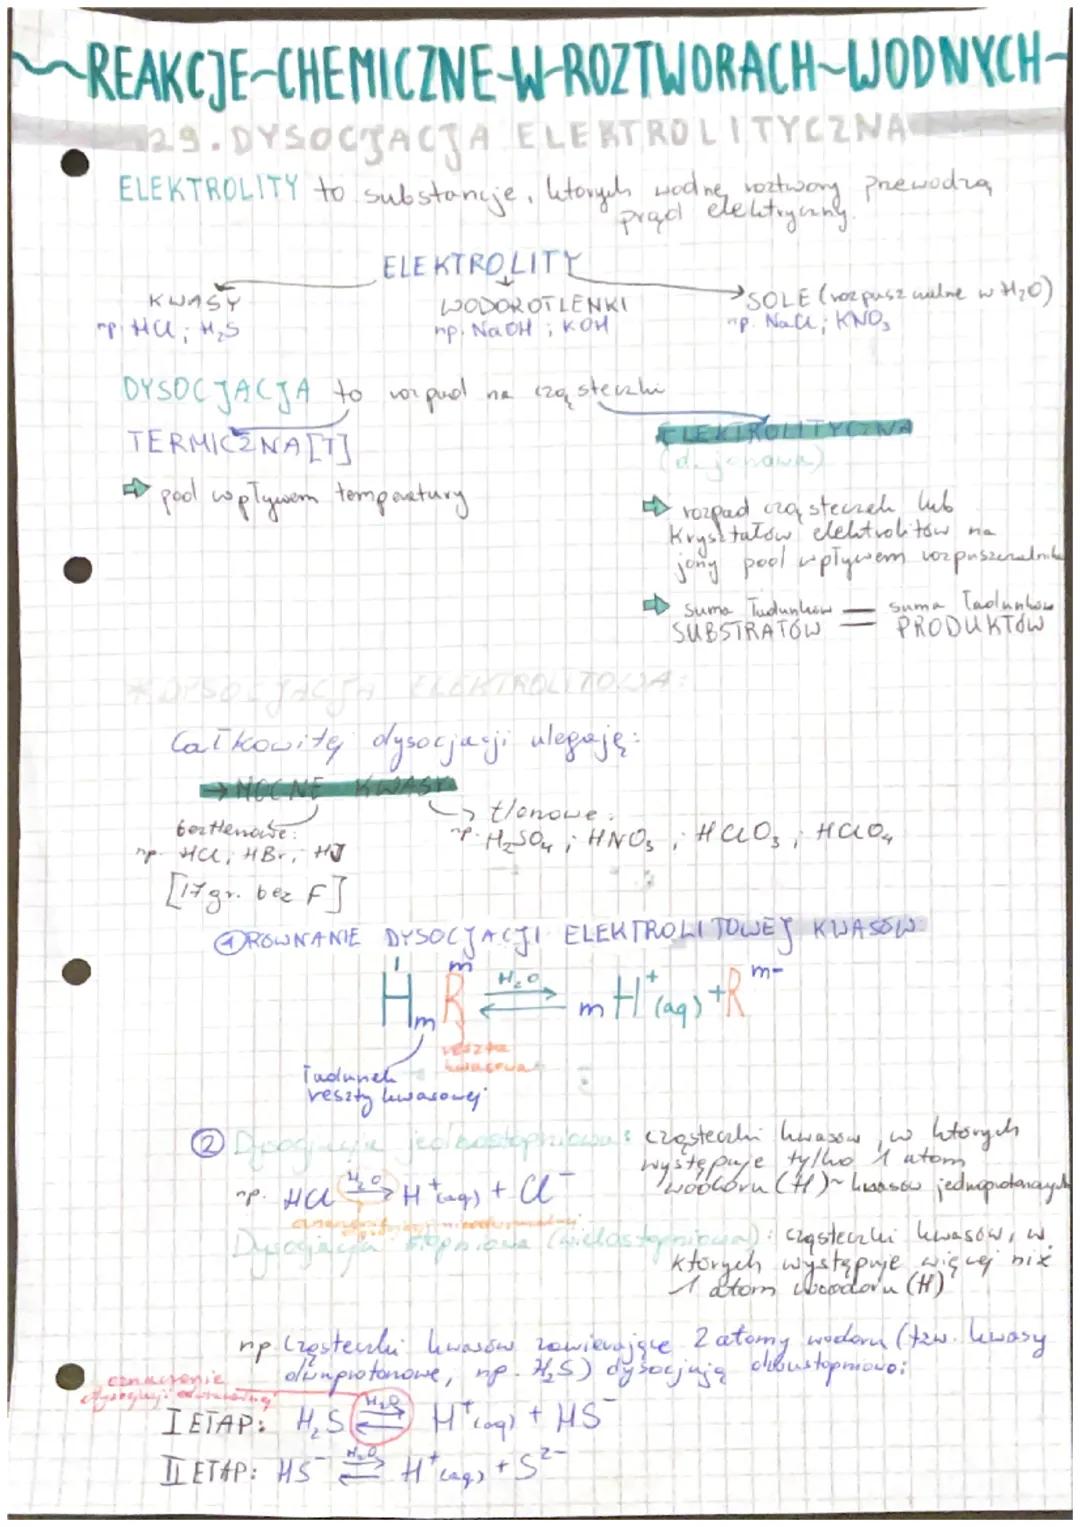 REAKCJE~CHEMICZNE~W~ROZTWORACH~WODNYCH~
29. DYSOCJACJA ELEKTROLITYCZNA
ELEKTROLITY to substancje, których wodne roztwory przewodzą
prąd elektryczny.
ELEKTROLITY
KWASY
np. HCl; H₂S
WODOROTLENKI
np. NaOH ; KOH
SOLE (rozpuszczalne w H₂O)
np. NaCl; KNO₃
DYSOCJACJA to rozpad na cząsteczki
TERMICZNA [T]
⇒ pod wpływem temperatury
ELEKTROLITYCZNA
(d. jonowa)
⇒ rozpad cząsteczek lub
kryształów elektrolitów na
jony pod wpływem rozpuszczalnika
⇒ suma ładunków = suma ładunków
SUBSTRATÓW PRODUKTÓW
*DYSOCJACJA ELEKTROLITOWA:
Całkowitej dysocjacji ulegają:
→ MOCNE KWASY
beztlenowe:
np. HCl; HBr; HJ
[17 gr. bez F]
→ tlenowe:
np. H₂SO₄ ; HNO₃ ; HClO₃ ; HClO₄
① RÓWNANIE DYSOCJACJI ELEKTROLITOWEJ KWASÓW
I m
HₘR ⇌ m H⁺(aq) + Rᵐ⁻
H₂O
reszta
kwasowa
ładunek
reszty kwasowej
② Dysocjacja jednostopniowa: cząsteczki kwasów, w których
występuje tylko 1 atom
wodoru (H) ~ kwasów jednoprotonowych
np. HCl →(H₂O) H⁺(aq) + Cl⁻
Dysocjacja stopniowa (wielostopniowa): cząsteczki kwasów, w
których występuje więcej niż
1 atom wodoru (H)
np. cząsteczki kwasów zawierające 2 atomy wodoru (tzw. kwasy
dwuprotonowe, np. H₂S) dysocjują dwustopniowo:
oznaczenie
dysocjacji odwracalnej
I ETAP: H₂S ⇌(H₂O) H⁺(aq) + HS⁻
II ETAP: HS⁻ ⇌(H₂O) H⁺(aq) + S²⁻